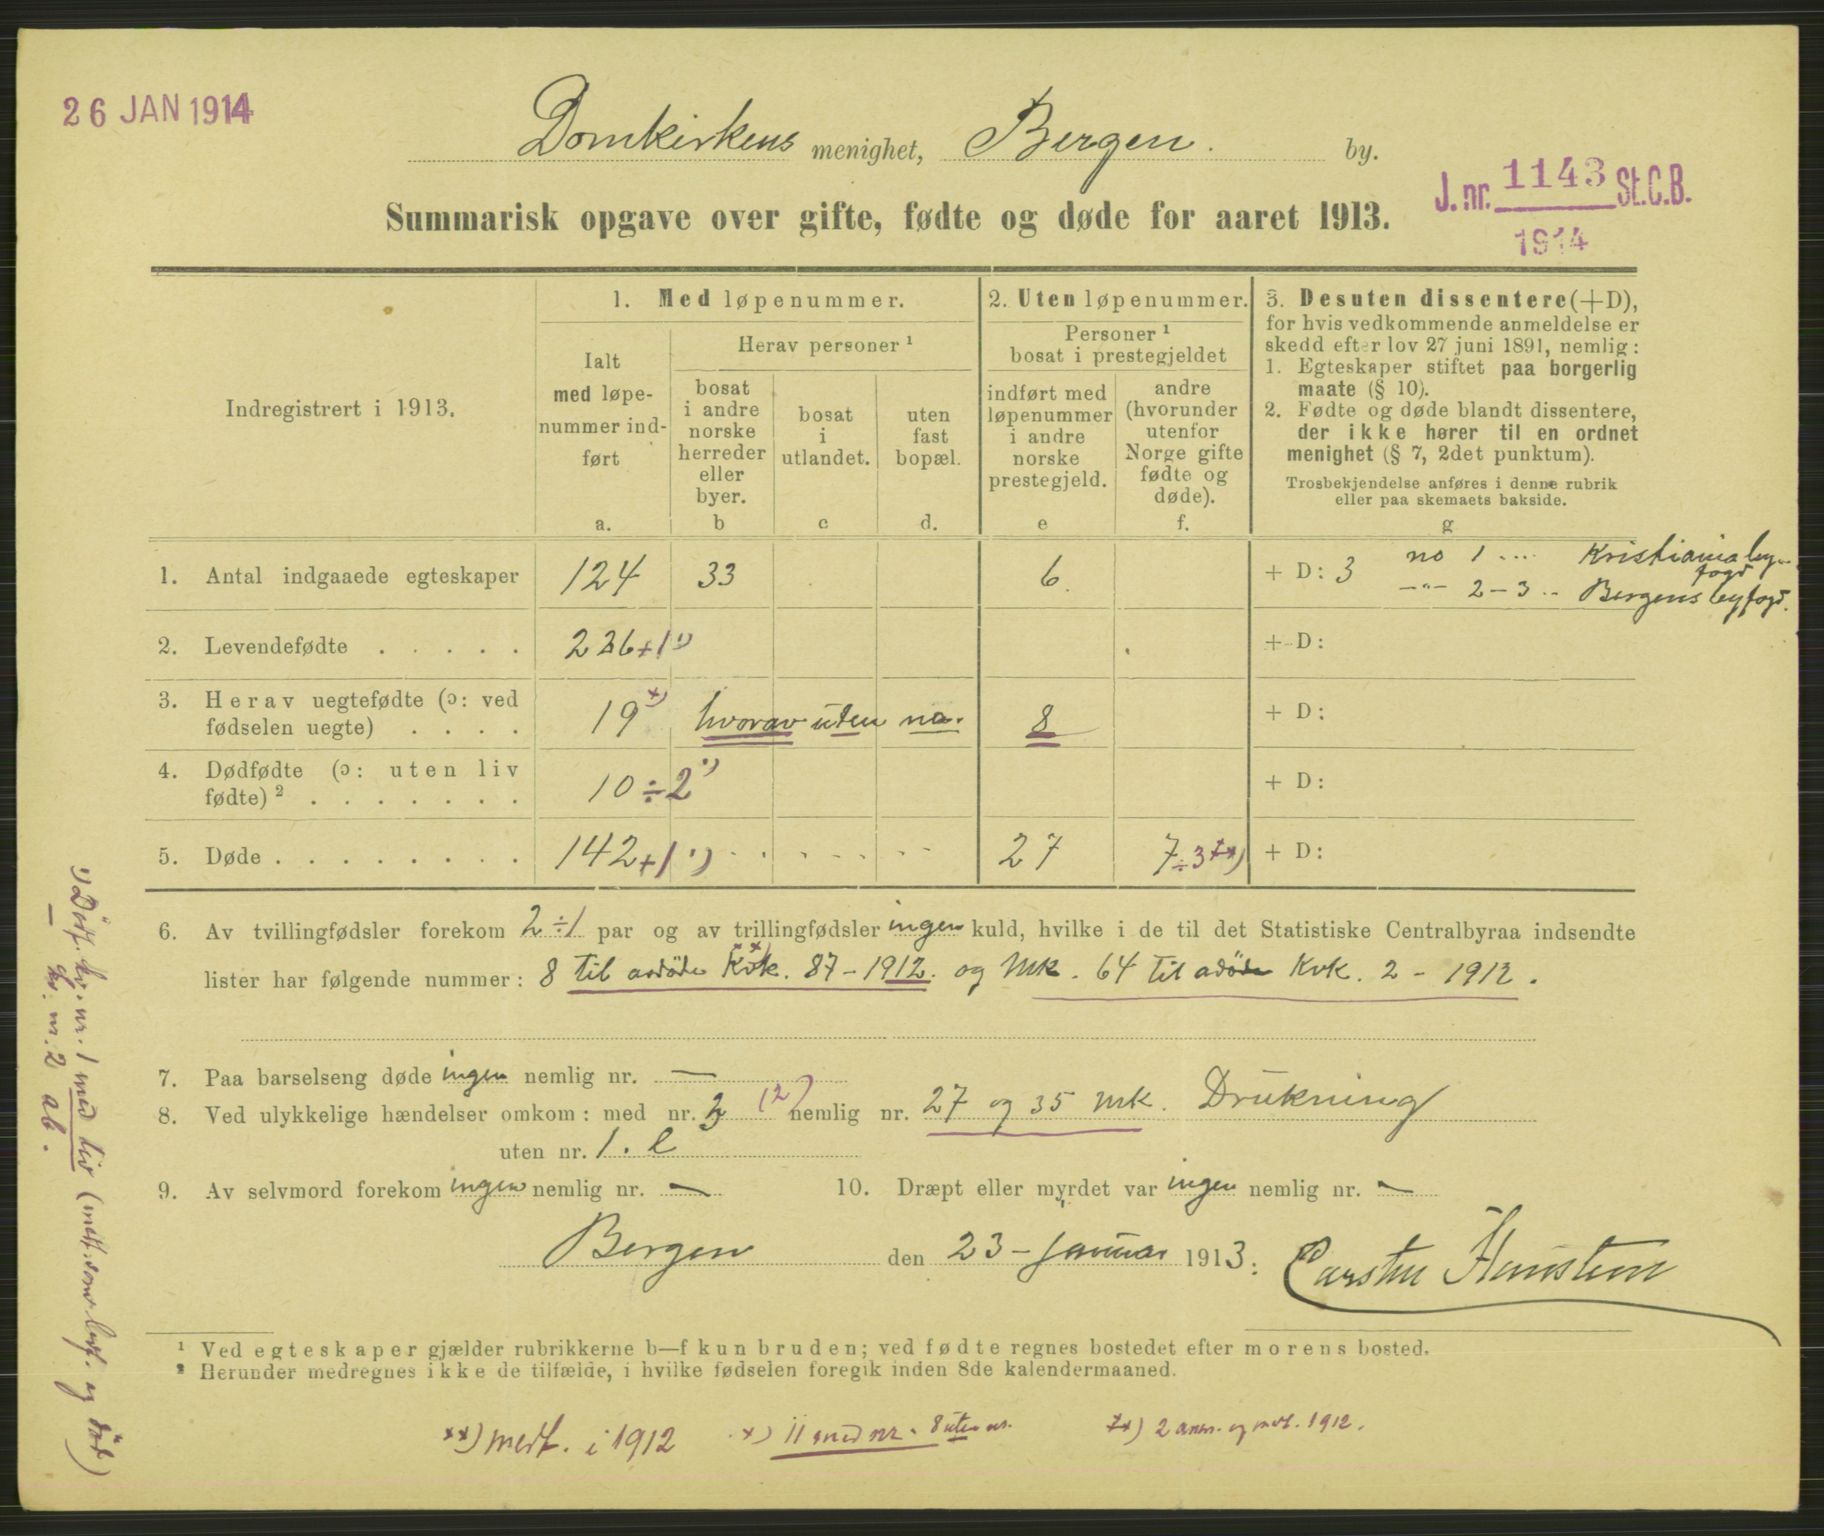 26 JAN 1914
Domkirkens menighet, Bergen. by.
J. nr. 1143 St.C.B.
1914
Summarisk opgave over gifte, fødte og døde for aaret 1913.
Indregistrert i 1913.
1. Med løpenummer.
Ialt
med løpe-
nummer ind-
ført
a.
Herav personer ¹
bosat
i andre
norske
herreder
eller
byer.
b
bosat
i
utlandet.
c
uten
fast
bopæl.
d.
2. Uten løpenummer.
Personer ¹
bosat i prestegjeldet
indført med
løpenummer
i andre
norske
prestegjeld.
e
andre
(hvorunder
utenfor
Norge gifte
fødte og
døde).
f.
3. Desuten dissentere (+D),
for hvis vedkommende anmeldelse er
skedd efter lov 27 juni 1891, nemlig:
1. Egteskaper stiftet paa borgerlig
maate (§ 10).
2. Fødte og døde blandt dissentere,
der ikke hører til en ordnet
menighet (§ 7, 2det punktum).
Trosbekjendelse anføres i denne rubrik
eller paa skemaets bakside.
g
1. Antal indgaaede egteskaper 124 33 6. + D: 3 no 1 .... Kristiania by-
fogd
—"— 2 – 3 .. Bergens byfogd.
2. Levendefødte . . . . . 226 +1 ¹) + D:
3. Herav uegtefødte (ɔ: ved
fødselen uegte) . . . . 19 *) hvorav uten no. 8 + D:
4. Dødfødte (ɔ: uten liv
fødte) ² . . . . . . . 10 ÷ 2 ¹) + D:
5. Døde . . . . . . . . 142 +1 ¹) 27 7 ÷3 **) + D:
6. Av tvillingfødsler forekom 2 ÷1 par og av trillingfødsler ingen kuld, hvilke i de til det Statistiske Centralbyraa indsendte
lister har følgende nummer: 8 til Kvk. 87 – 1912. og Mk. 64 til Kvk. 2 – 1912.
7. Paa barselseng døde ingen nemlig nr. —
8. Ved ulykkelige hændelser omkom: med nr. (2) nemlig nr. 27 og 35 Mk. Drukning
uten nr. 1.
9. Av selvmord forekom ingen nemlig nr. —
10. Dræpt eller myrdet var ingen nemlig nr. —
Bergen den 23 – Januar 1913: Carsten Hanstein
¹ Ved egteskaper gjælder rubrikkerne b—f kun bruden; ved fødte regnes bostedet efter morens bosted.
² Herunder medregnes ikke de tilfælde, i hvilke fødselen foregik inden 8de kalendermaaned.
**) medt. i 1912
*) 11 med nr. 8 uten nr.
**) 2 anm. og medt. 1912.
¹) Dødf. kv. nr. 1 med liv (medt. som levf. og død)
— kv. nr. 2 ab.